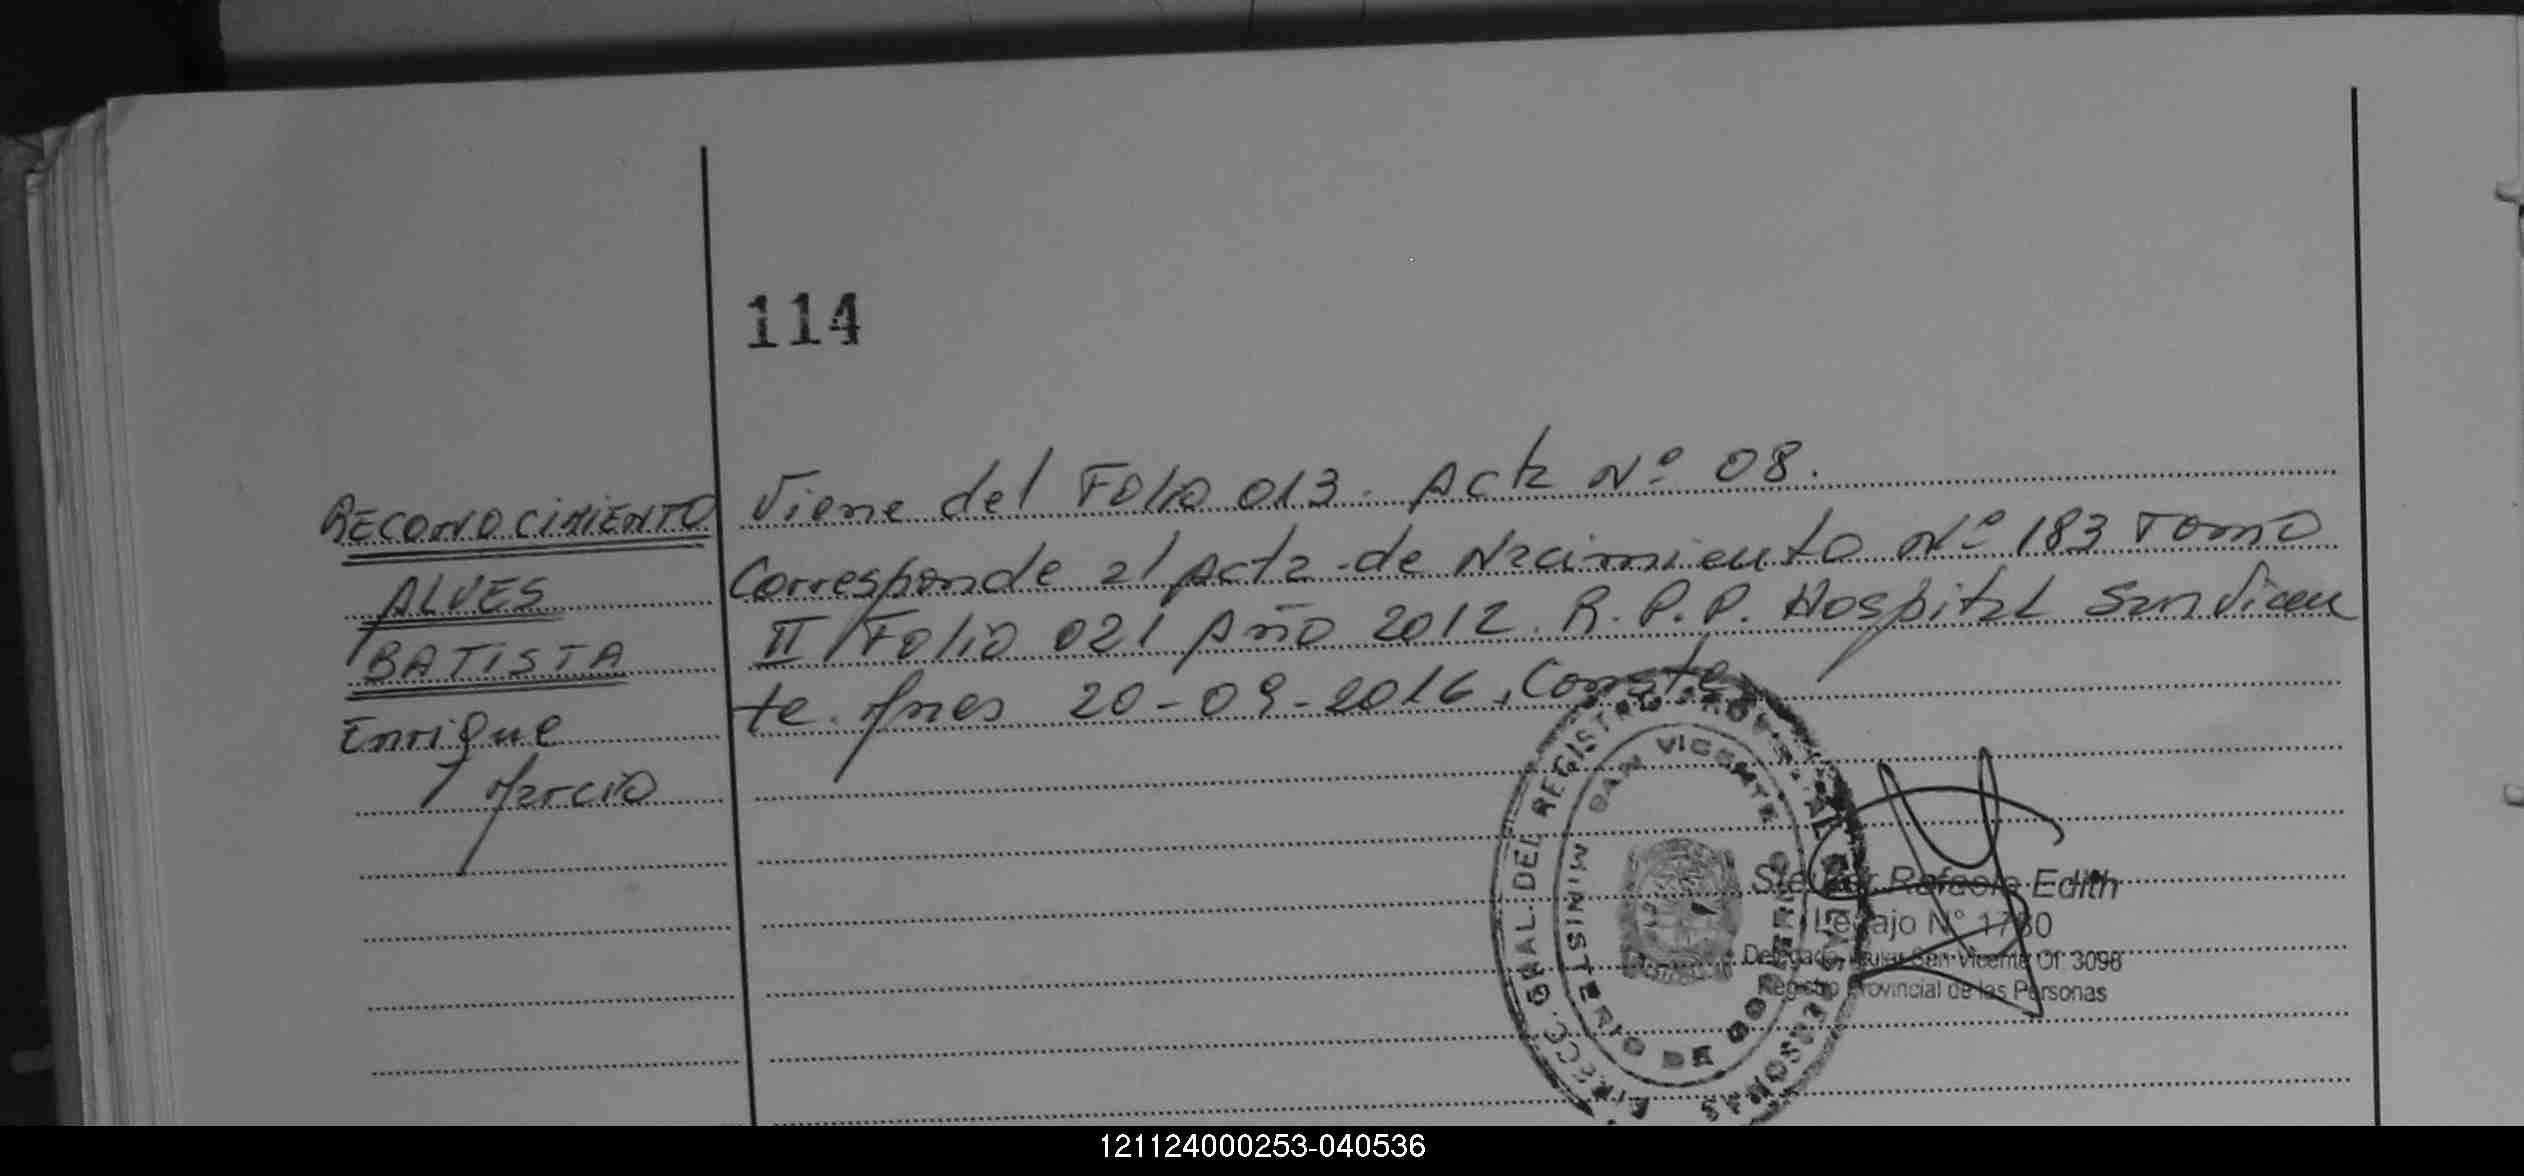 114
RECONOCIMIENTO
ALVES
BATISTA
Enrique
Marcio
Viene del Folio 013. Acta Nº 08.
Corresponde al Acta de Nacimiento Nº 183 Tomo
II Folio 021 Año 2012. R.P.P. Hospital San Vicen
te. Mnes 20-09-2016, Conste
DIRECC. GRAL. DEL REGISTRO PROVINCIAL DE LAS PERSONAS
SAN VICENTE
MINISTERIO DE GOBIERNO
Edith
Legajo Nº 1780
San Vicente Of. 3098
Registro Provincial de las Personas
121124000253-040536